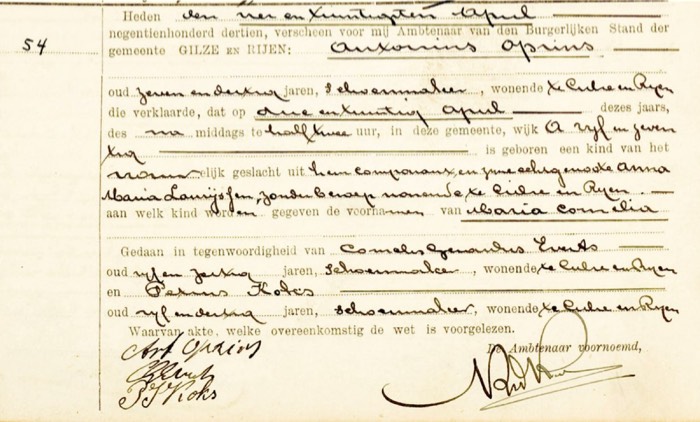 54
Heden den vier en twintigsten April
negentienhonderd dertien, verscheen voor mij Ambtenaar van den Burgerlijken Stand der
gemeente GILZE EN RIJEN: Antonius Oprins
oud zeven en dertig jaren, schoenmaker, wonende te Gilze en Ryen
die verklaarde, dat op drie en twintig April dezes jaars,
des na middags te half twee uur, in deze gemeente, wijk A vyf en zeven
tig is geboren een kind van het
vrouwelijk geslacht uit hem comparant, en zyne echtgenoote Anna
Maria Lamijssen, zonder beroep wonende te Gilze en Ryen
aan welk kind worden gegeven de voornamen van Maria Cornelia
Gedaan in tegenwoordigheid van Cornelis Gerardus Everts
oud vyf en zestig jaren, schoenmaker, wonende te Gilze en Ryen
en Petrus Koks
oud vyf en dertig jaren, schoenmaker, wonende te Gilze en Ryen
Waarvan akte, welke overeenkomstig de wet is voorgelezen.
De Ambtenaar voornoemd,
Ant Oprins
Koks